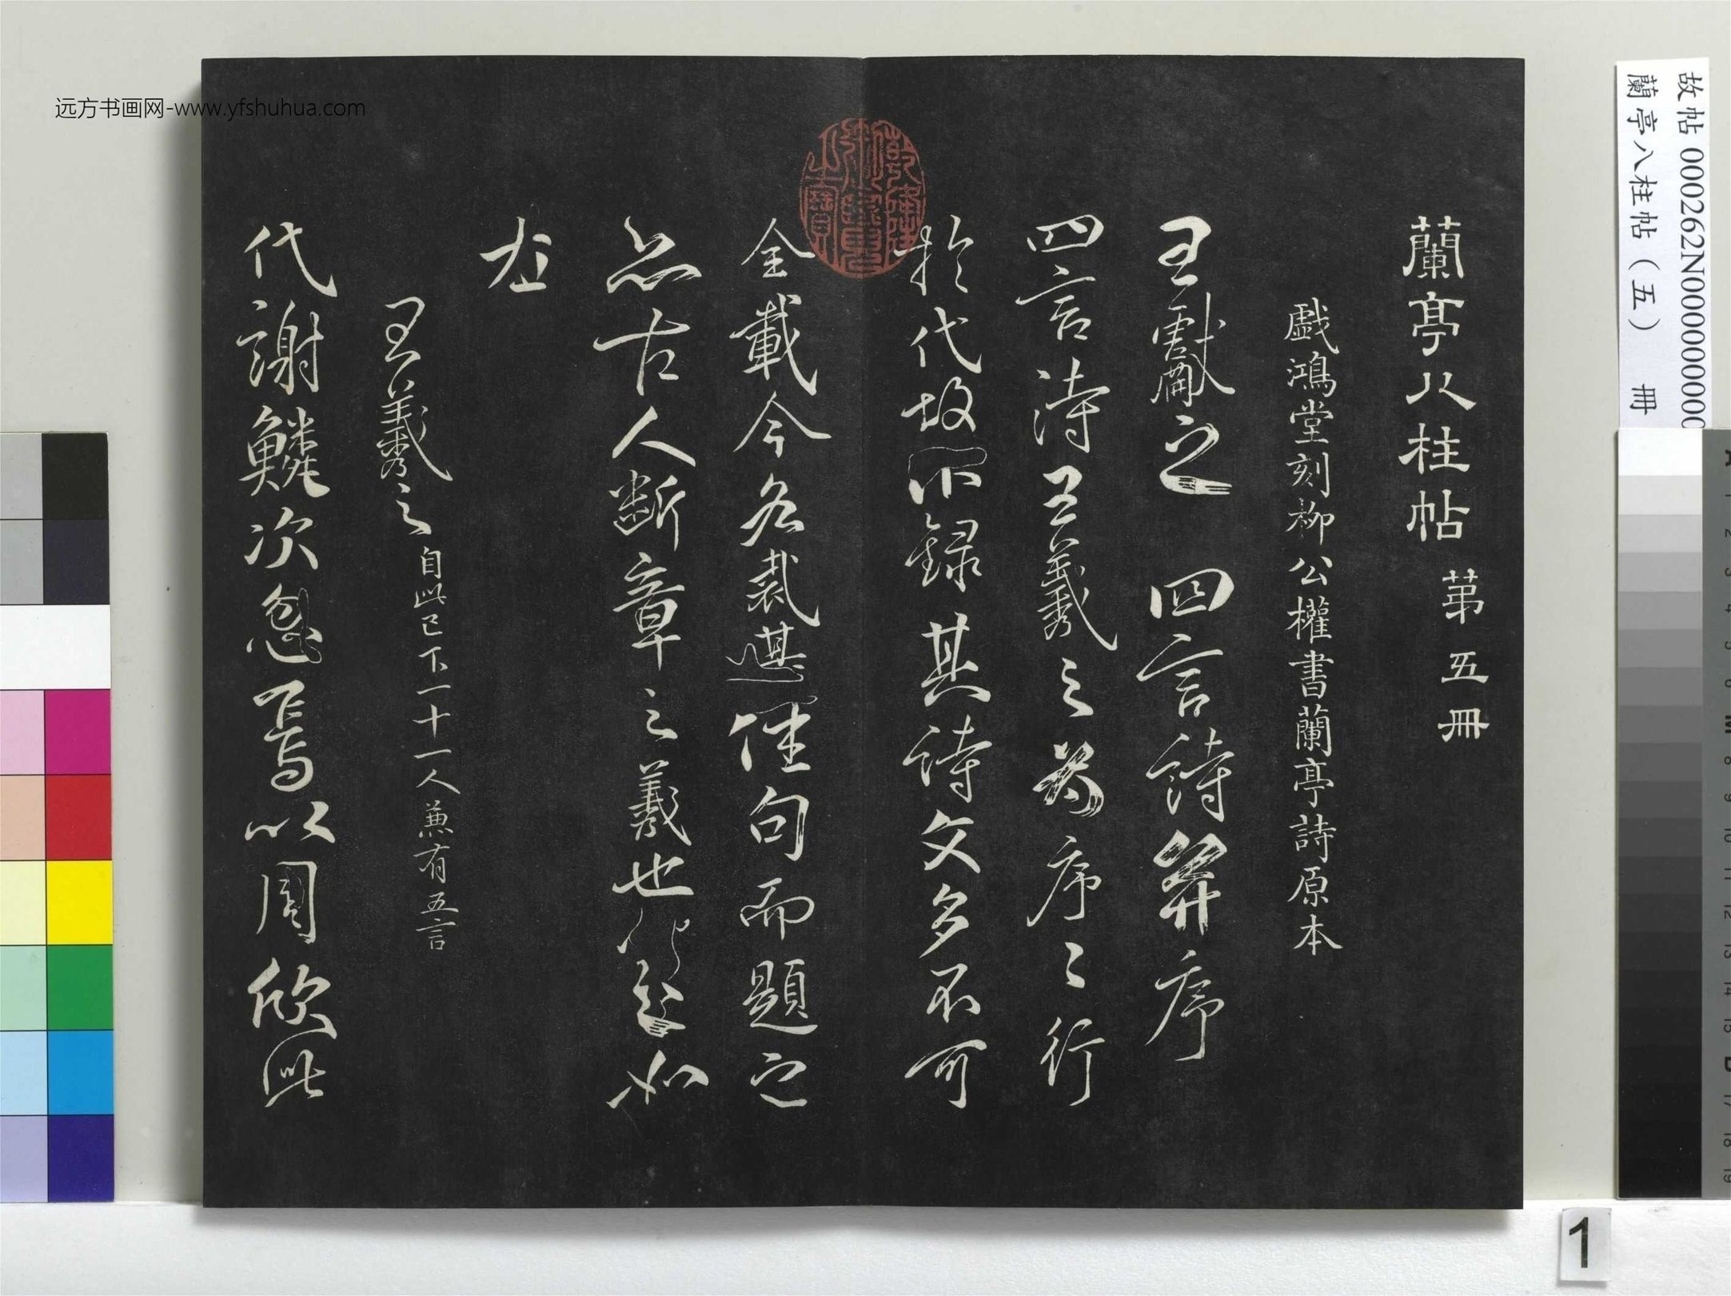 远方书画网-www.yfshuhua.com
故帖 000262N000000000
蘭亭八柱帖（五） 冊
蘭亭八柱帖 第五冊
戲鴻堂刻柳公權書蘭亭詩原本
王獻之 四言詩并序
四言詩王羲之為序〻行
於代故不錄其詩文多不可
全載今各裁佳句而題之
亦古人斷章之義也如
左
王羲之 自此已下一十一人兼有五言
代謝鱗次忽焉以周欣此
1